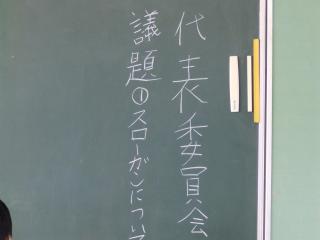 代表委員会
議題①スローガンについて